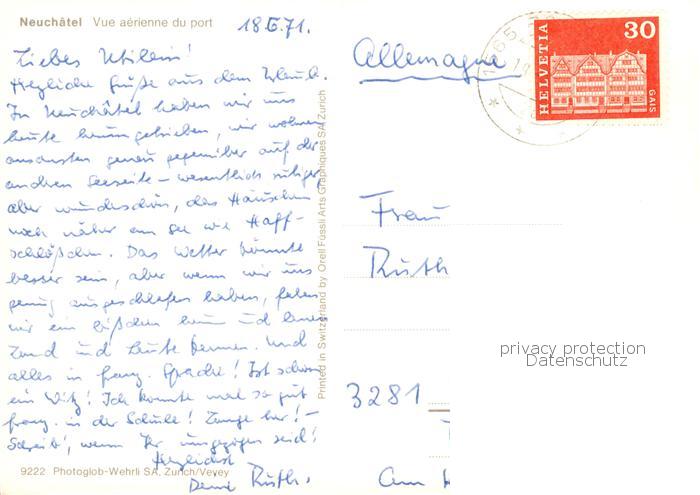 Neuchâtel Vue aérienne du port
18.6.71.
Liebes Utilein!
Herzliche Grüße aus dem Urlaub.
In Neuchâtel haben wir uns
heute herumgetrieben, wir wohnen
ansonsten genau gegenüber auf der
andren Seeseite – wesentlich ruhiger,
aber wunderschön, das Häuschen
noch näher am See wie Haff-
schlößchen. Das Wetter könnte
besser sein, aber wenn wir uns
genug ausgeschlafen haben, fahren
wir ein bißchen herum und lernen
Land und Leute kennen. Und
alles in franz. Sprache! Ist schon
ein Witz! Ich konnte mal so gut
franz. in der Schule! Lange her! –
Schreibt, wenn Ihr umgezogen seid!
Herzlichst
Deine Ruth.
9222 Photoglob-Wehrli SA, Zürich/Vevey
Printed in Switzerland by Orell Füssli Arts Graphiques SA, Zurich
Allemagne
HELVETIA
30
GAIS
Frau
Ruth
privacy protection
Datenschutz
3281
Am